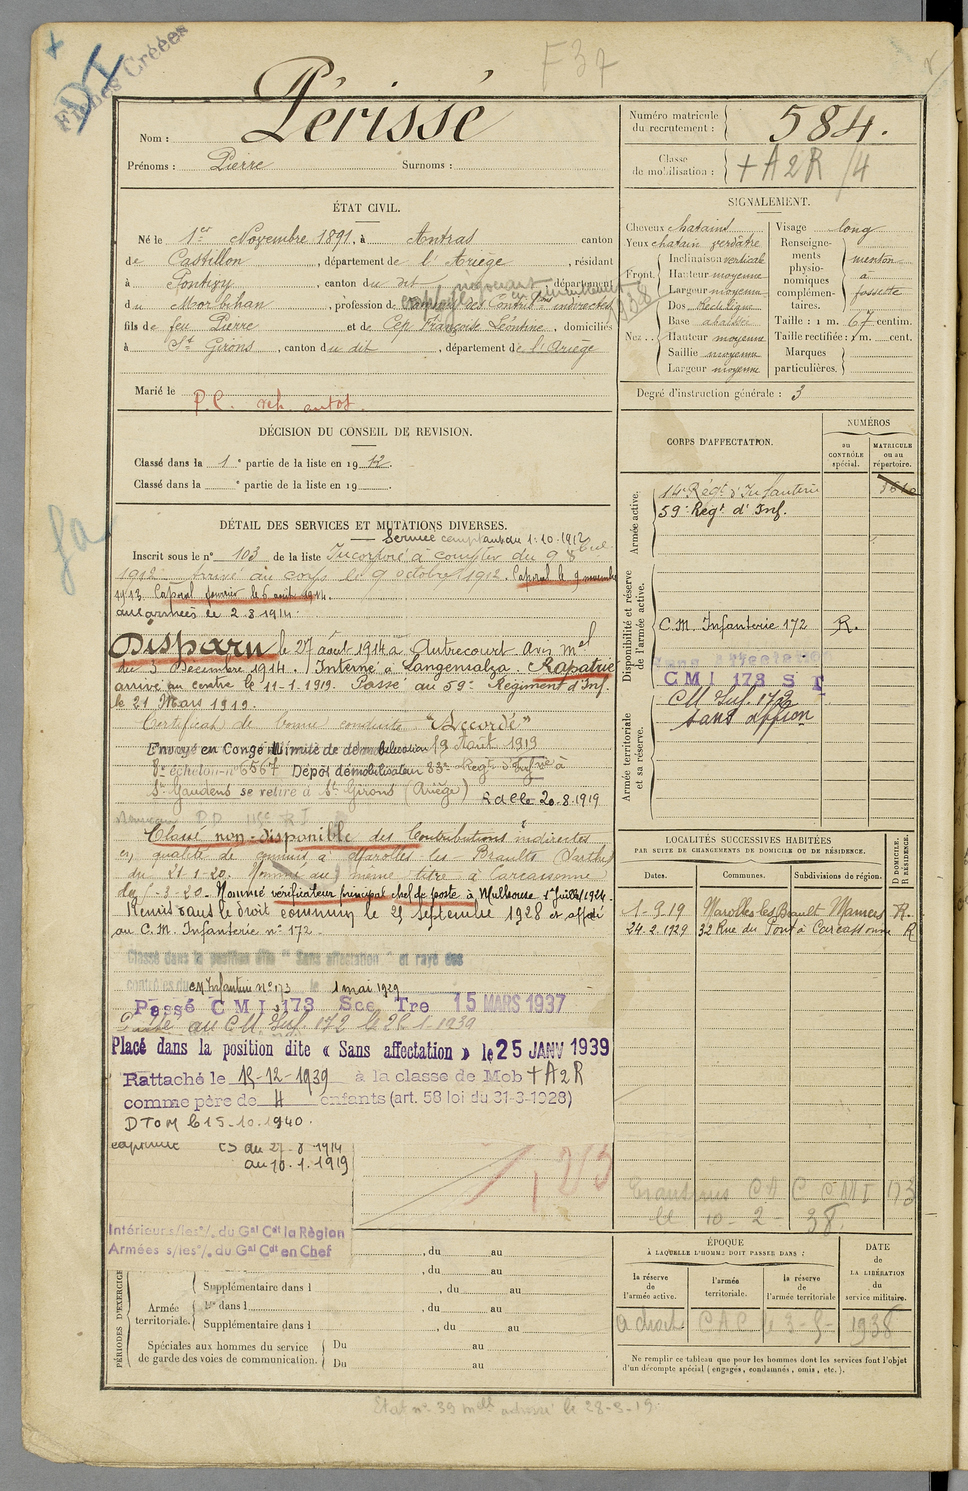 Fiches Créées
DI
F37
Périssé
Nom :
Prénoms : Pierre Surnoms :
Numéro matricule du recrutement : 584.
Classe de mobilisation : + A 2 R /4
ÉTAT CIVIL.
Né le 1er Novembre 1891, à Antras canton
de Castillon, département de l'Ariège, résidant
à Pontivy, canton du dit, département
du Morbihan, profession de Contrib. indirectes
fils de feu Pierre et de Cep Françoise Léontine, domiciliés
à St Girons, canton du dit, département de l'Ariège
Marié le
P.C. autos.
SIGNALEMENT.
Cheveux chatains
Yeux chatain verdâtre
Front. Inclinaison vertical
Hauteur moyenne
Largeur moyenne
Nez. Dos rectiligne
Base abaissé
Hauteur moyenne
Saillie moyenne
Largeur moyenne
Visage long
Renseignements physionomiques complémentaires. menton à fossette
Taille : 1 m. 67 centim.
Taille rectifiée : 1 m. cent.
Marques particulières.
Degré d'instruction générale : 3
DÉCISION DU CONSEIL DE REVISION.
Classé dans la 1e partie de la liste en 1912.
Classé dans la e partie de la liste en 19 .
CORPS D'AFFECTATION.
NUMÉROS
au CONTRÔLE spécial.
MATRICULE ou au répertoire.
Armée active.
14e Régt d'Infanterie
59e Régt d'Inf.
Disponibilité et réserve de l'armée active.
C.M. Infanterie 172 R.
Sans affectation
CMI 173 S T
Armée territoriale et sa réserve.
CM Inf. 172
sans affion
DÉTAIL DES SERVICES ET MUTATIONS DIVERSES.
Service comptant du 1-10-1912
Inscrit sous le n° 103 de la liste Incorporé à compter du 9 8bre
1912 Arrivé au corps le 9 octobre 1912. Caporal le 9 novembre
1913. Caporal fourrier le 6 août 1914.
aux armées le 2 8 1914.
Disparu le 27 août 1914 à Autrecourt Avis Mel
du 5 Décembre 1914. Interné à Langensalza. Rapatrié
arrivé au centre le 11-1-1919. Passé au 59e Régiment d'Inf.
le 21 Mars 1919.
Certificat de bonne conduite "Accordé"
Envoyé en Congé illimité de démobilisation 19 Août 1919
8e échelon n° 6567 Dépôt démobilisateur 83e Régt d'Infrie à
St Gaudens se retire à St Girons (Ariège) 20-8-1919
Classé non-disponible des Contributions indirectes
en qualité de commis à Marolles-les-Braults Sarthe
du 21-1-20. Nommé au même titre à Carcassonne
du -3-20. Nommé vérificateur principal chef de poste à Mulhouse 1er Juillet 1924.
Remis dans le droit commun le 25 septembre 1928 et affecté
au C.M. Infanterie n° 172.
Classé dans la position dite "Sans affectation" et rayé des
contrôles du CM Infanterie n° 173 le 1 mai 1929
Passé CMI 173 Sce Tre 15 MARS 1937
Passé au CM Inf. 172 le 1-1939
Placé dans la position dite « Sans affectation » le 25 JANV 1939
Rattaché le 15-12-1939 à la classe de Mob + A 2 R
comme père de 4 enfants (art. 58 loi du 31-3-1928)
DTOM le 15-10-1940.
CS du 27-8-1914
au 10-1-1919
Intérieur s/les o/. du Gal Cdt la Région
Armées s/les o/. du Gal Cdt en Chef
LOCALITÉS SUCCESSIVES HABITÉES
PAR SUITE DE CHANGEMENTS DE DOMICILE OU DE RÉSIDENCE.
Dates. Communes. Subdivisions de région. D DOMICILE. R RÉSIDENCE.
1-9-19 Marolles les Brault Mamers R.
24.2.1929 32 Rue du Pont à Carcassonne R
CMI 173
le 10-2-38.
PÉRIODES D'EXERCICE
, du au
, du au
Supplémentaire dans l , du au
Armée territoriale. 1re dans l , du au
Supplémentaire dans l , du au
Spéciales aux hommes du service de garde des voies de communication. Du au
Du au
ÉPOQUE
À LAQUELLE L'HOMME DOIT PASSER DANS :
la réserve de l'armée active.
l'armée territoriale.
la réserve de l'armée territoriale
DATE de LA LIBÉRATION du service militaire.
a droit CAC le 3-5- 1938
Ne remplir ce tableau que pour les hommes dont les services font l'objet
d'un décompte spécial (engagés, condamnés, omis, etc.).
État n° 39 adressé le 28-8-19.